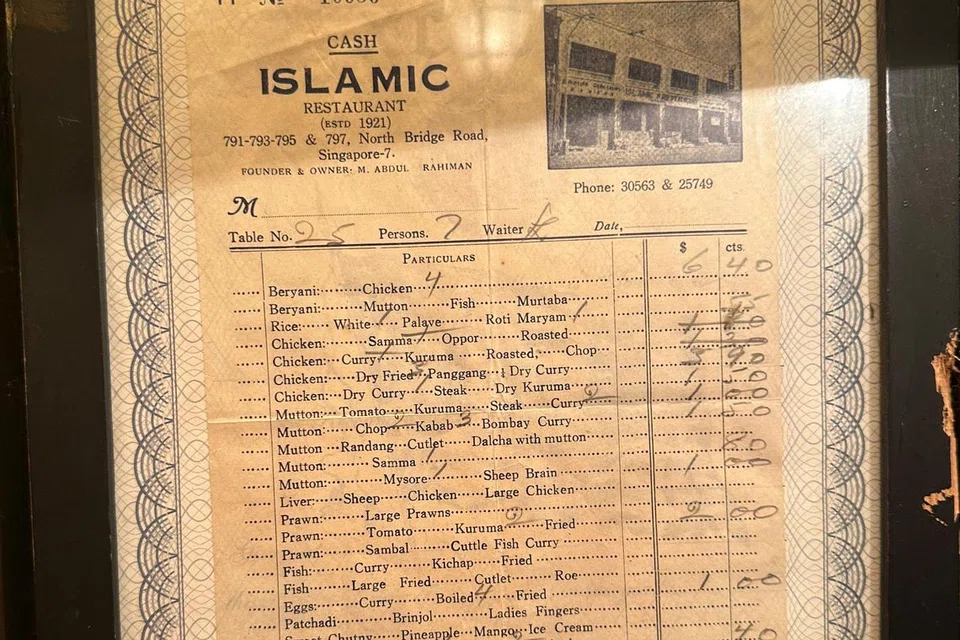 Nº 10686
CASH
ISLAMIC
RESTAURANT
(ESTD 1921)
791-793-795 & 797, North Bridge Road,
Singapore-7.
FOUNDER & OWNER: M. ABDUL RAHIMAN
Phone: 30563 & 25749
M
Table No. 25 Persons. 7 Waiter Date,
PARTICULARS $ cts.
Beryani: Chicken 4 6 40
Beryani: Mutton Fish Murtaba
Rice: White 1 Palave Roti Maryam 1
Chicken: Samma 1 Oppor Roasted
Chicken: Curry 1 Kuruma Roasted, Chop
Chicken: Dry Fried Panggang ½ Dry Curry
Chicken: Dry Curry Steak Dry Kuruma
Mutton: Tomato Kuruma Steak Curry 2
Mutton: Chop 2 Kabab 3 Bombay Curry
Mutton Randang Cutlet Dalcha with mutton
Mutton: Samma 1
Mutton: Mysore 1 Sheep Brain
Liver: Sheep Chicken Large Chicken
Prawn: Large Prawns 2 00
Prawn: Tomato Kuruma Fried
Prawn: Sambal Cuttle Fish Curry
Fish: Curry Kichap Fried
Fish Large Fried Cutlet Roe
Eggs: Curry Boiled 4 Fried 1 00
Patchadi Brinjol Ladies Fingers
Sweet Chutny Pineapple Mango Ice Cream 40